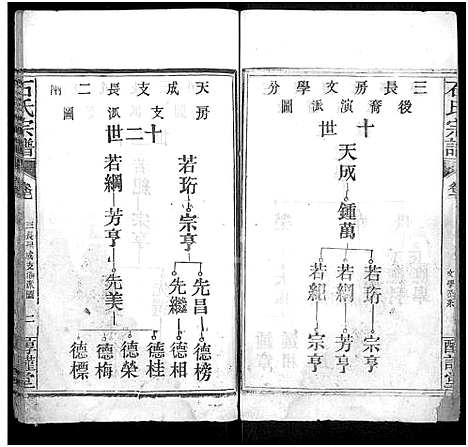 三長房文學分
後裔演派圖
十世
天成
鍾萬
若珩 若綱 若紀
宗亨 芳亨 宗亨
石氏宗譜
天成支長二兩
房支派圖
十二世
若珩 宗亨
先昌 先繼
德榜 德相
若綱 芳亨 先美
德桂 德榮 德梅 德標
石氏宗譜